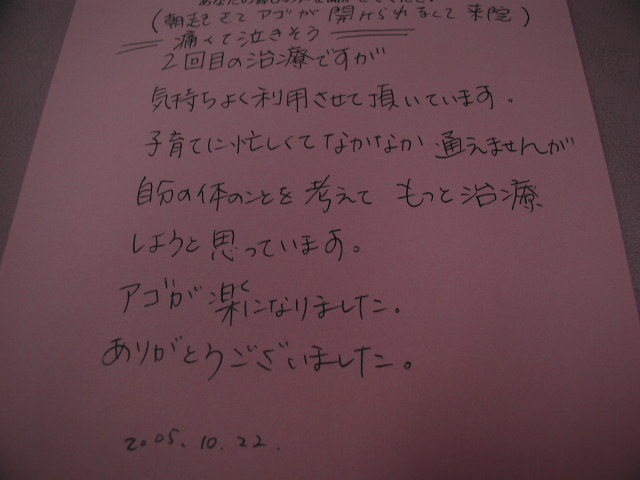 (朝起きてアゴが開けられなくて来院)
痛くて泣きそう
2回目の治療ですが
気持ちよく利用させて頂いています。
子育てに忙しくてなかなか通えませんが
自分の体のことを考えてもっと治療
しようと思っています。
アゴが楽になりました。
ありがとうございました。
2005.10.22.